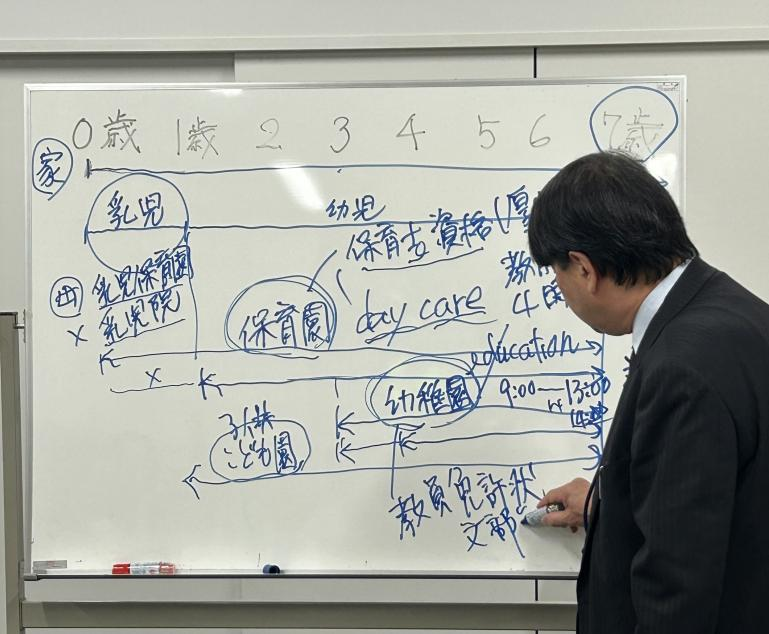 0歳 1歳 2 3 4 5 6 7歳
家
乳児 幼児
保育士資格(
乳児保育園
乳児院
×
保育園 day care
4時
education
×
幼稚園 9:00 13:00
14:00
こども園
教員免許状
文部